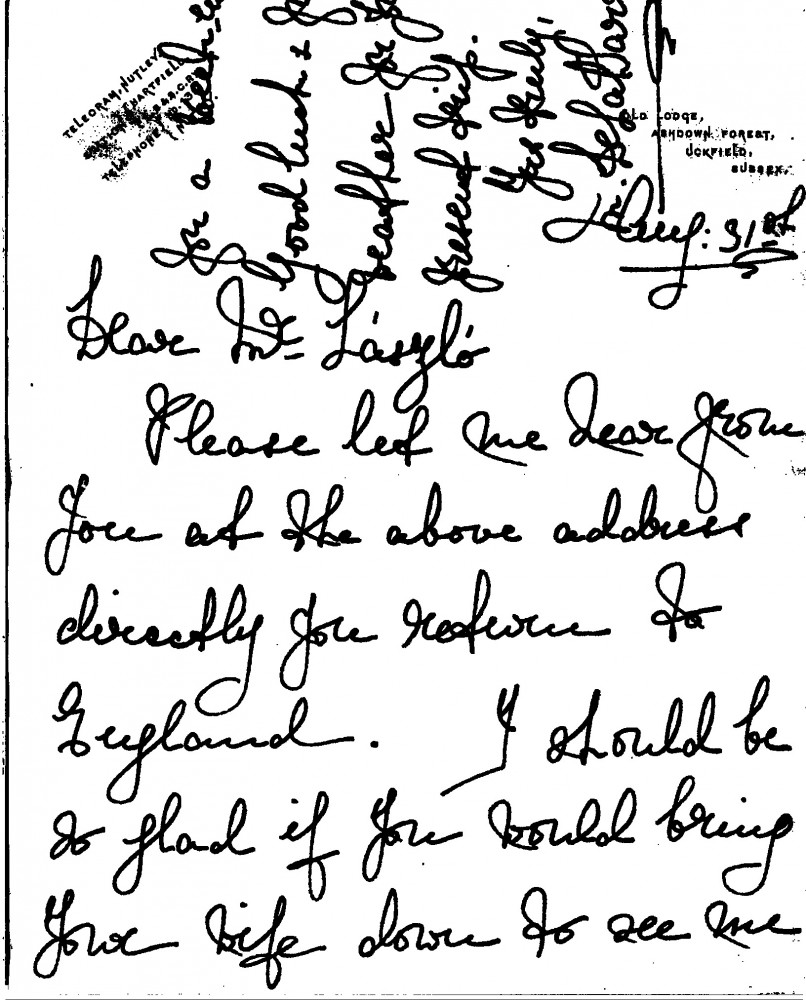 TELEGRAM, NUTLEY.
OLD LODGE,
ASHDOWN FOREST,
UCKFIELD,
SUSSEX.
Aug: 31st
Dear Mr László
Please let me hear from
you at the above address
directly you return to
England. I should be
so glad if you would bring
your wife down to see me
for a week-
Good luck &
weather for
present trip.
Yrs truly,